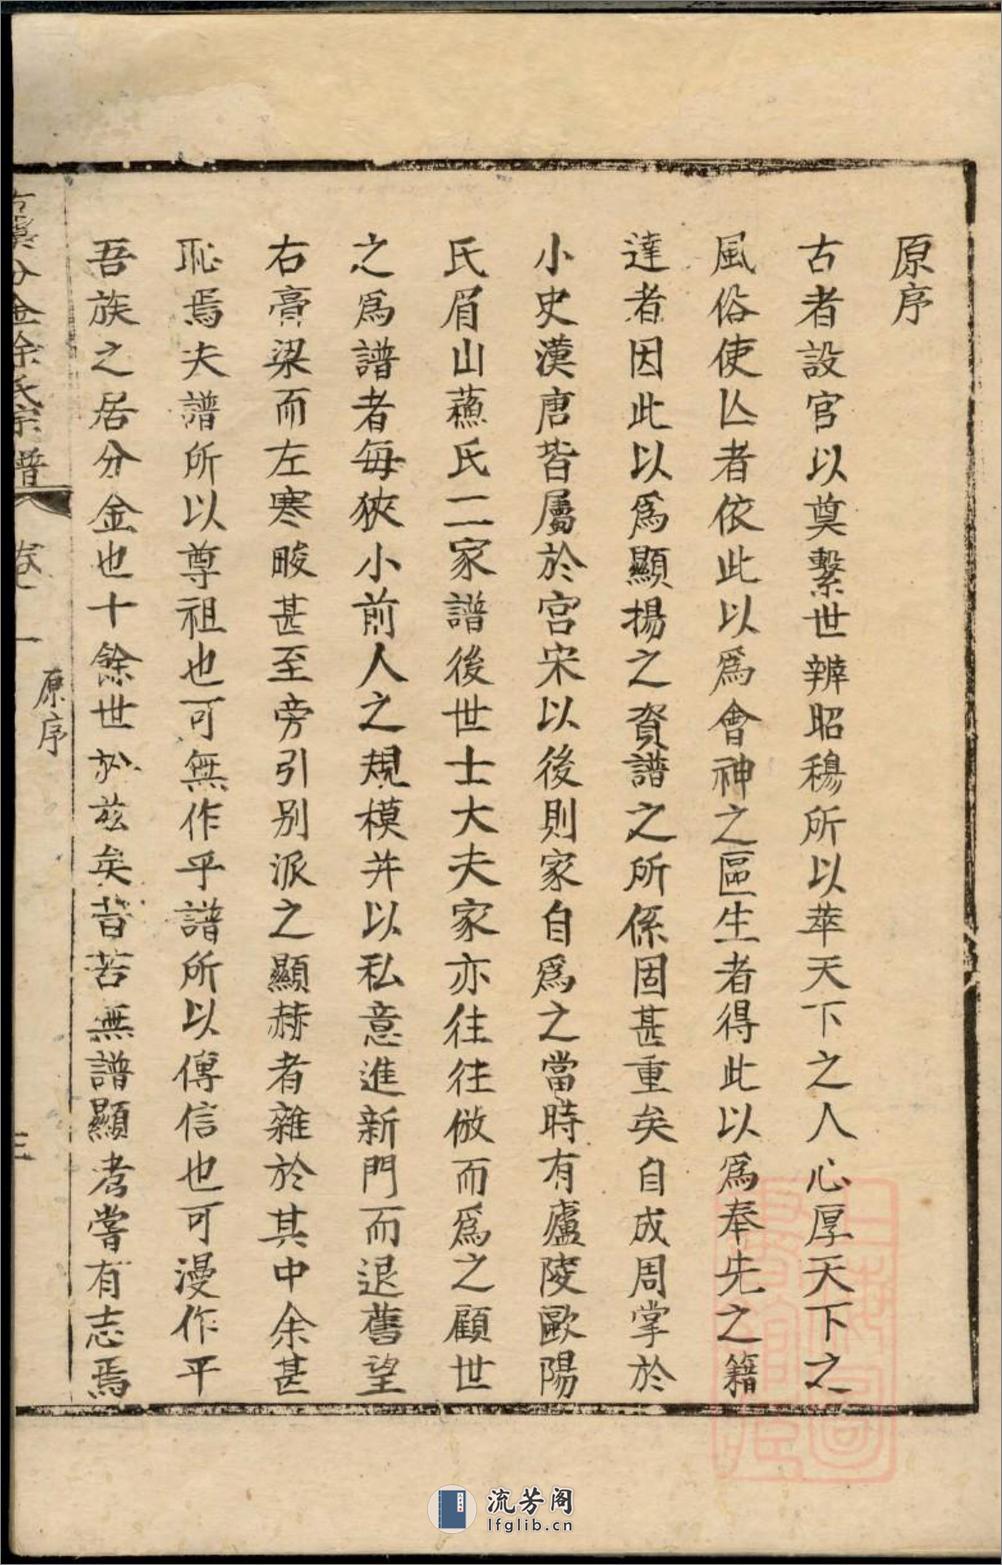 原序
古者設官以奠繫世辨昭穆所以萃天下之人心厚天下之
風俗使亾者依此以爲會神之區生者得此以爲奉先之籍
達者因此以爲顯揚之資譜之所係固甚重矣自成周掌於
小史漢唐皆屬於宫宋以後則家自爲之當時有廬陵歐陽
氏眉山蘓氏二家譜後世士大夫家亦往往倣而爲之顧世
之爲譜者每狹小前人之規模并以私意進新門而退舊望
右膏梁而左寒畯甚至旁引别派之顯赫者雜於其中余甚
恥焉夫譜所以尊祖也可無作乎譜所以傳信也可漫作平
吾族之居分金也十餘世於兹矣昔苦無譜顯考嘗有志焉
分金徐氏宗譜
卷一
原序
三
流芳阁
lfglib.cn